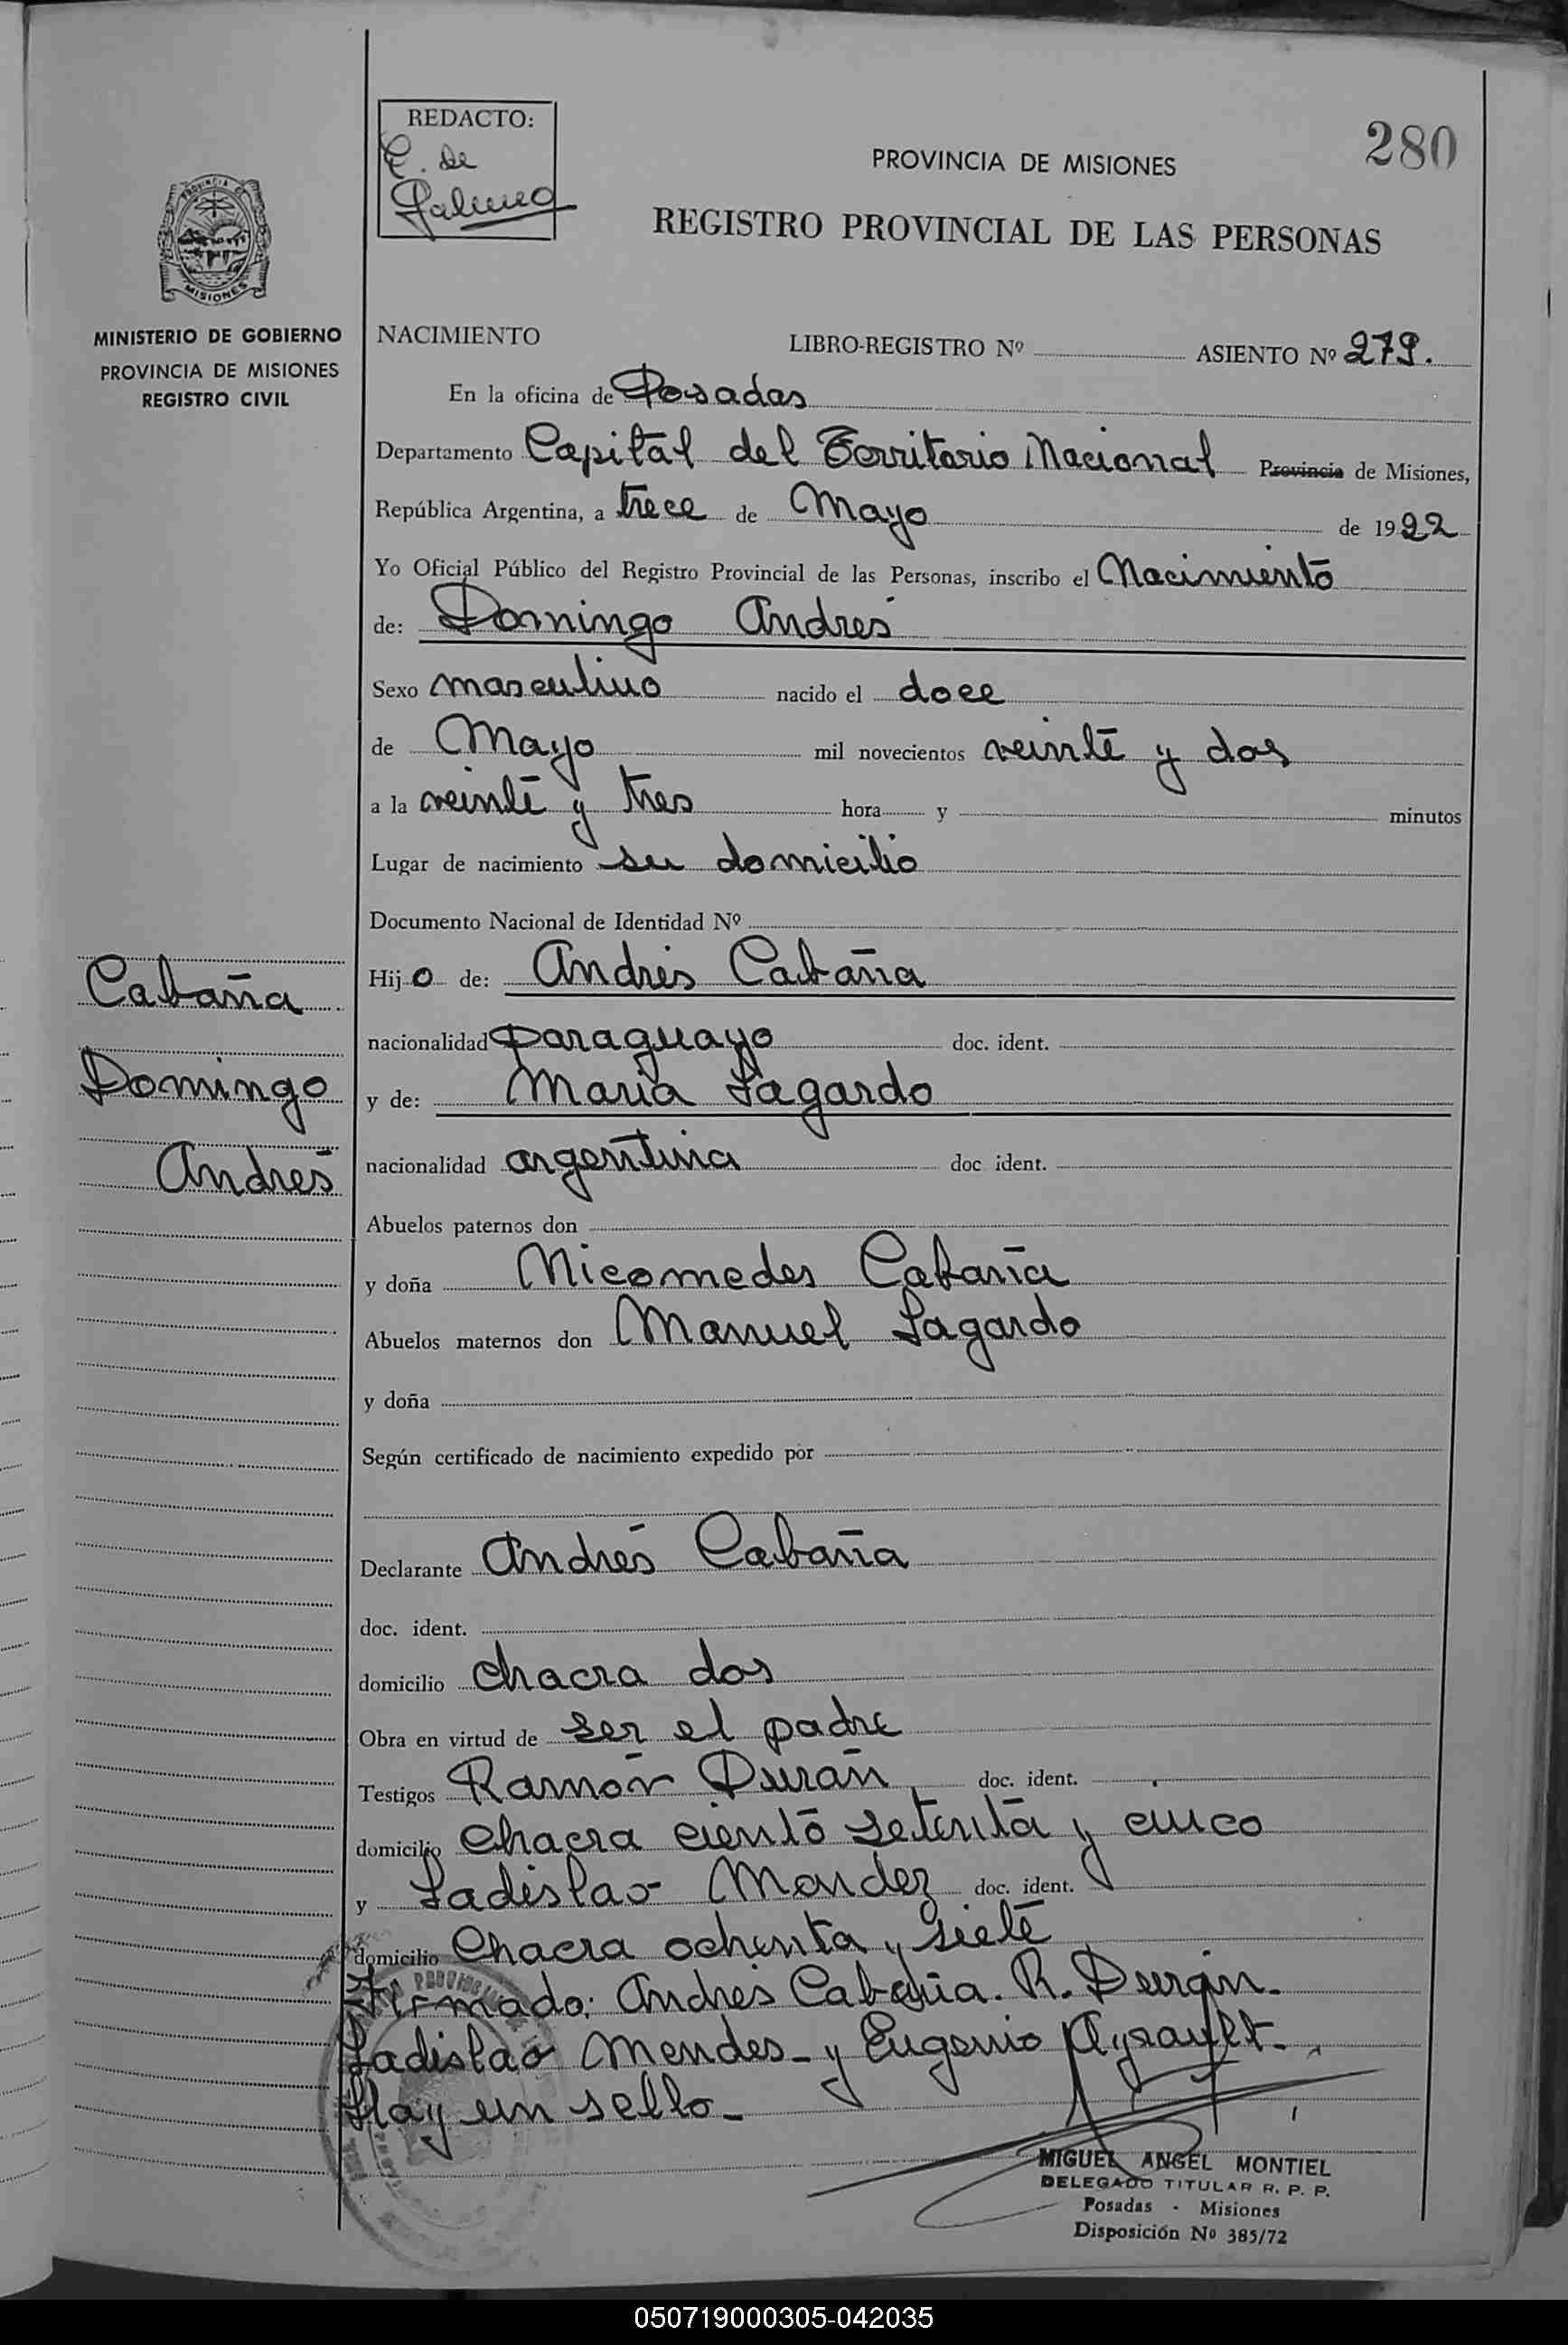 REDACTO:
E. de
280
PROVINCIA DE MISIONES
REGISTRO PROVINCIAL DE LAS PERSONAS
MISIONES
MINISTERIO DE GOBIERNO
PROVINCIA DE MISIONES
REGISTRO CIVIL
NACIMIENTO LIBRO-REGISTRO Nº ASIENTO Nº 279.
En la oficina de Posadas
Departamento Capital del Territorio Nacional Provincia de Misiones,
República Argentina, a trece de Mayo de 1922
Yo Oficial Público del Registro Provincial de las Personas, inscribo el Nacimiento
de: Domingo Andrés
Sexo masculino nacido el doce
de Mayo mil novecientos veinte y dos
a la veinte y tres hora y minutos
Lugar de nacimiento su domicilio
Documento Nacional de Identidad Nº
Cabaña
Domingo
Andrés
Hijo de: Andrés Cabaña
nacionalidad paraguayo doc. ident.
y de: Maria Lagardo
nacionalidad argentina doc ident.
Abuelos paternos don
y doña Nicomedes Cabaña
Abuelos maternos don Manuel Lagardo
y doña
Según certificado de nacimiento expedido por
Declarante Andrés Cabaña
doc. ident.
domicilio chacra dos
Obra en virtud de ser el padre
Testigos Ramón Durán doc. ident.
domicilio chacra ciento setenta y cinco
y Ladislao Mendez doc. ident.
domicilio Chacra ochenta y siete
Firmado: Andrés Cabaña. R. Durán.
Ladislao Mendes - y Eugenio Ayrault.
Hay un sello -
MIGUEL ANGEL MONTIEL
DELEGADO TITULAR R. P. P.
Posadas - Misiones
Disposición Nº 385/72
050719000305-042035